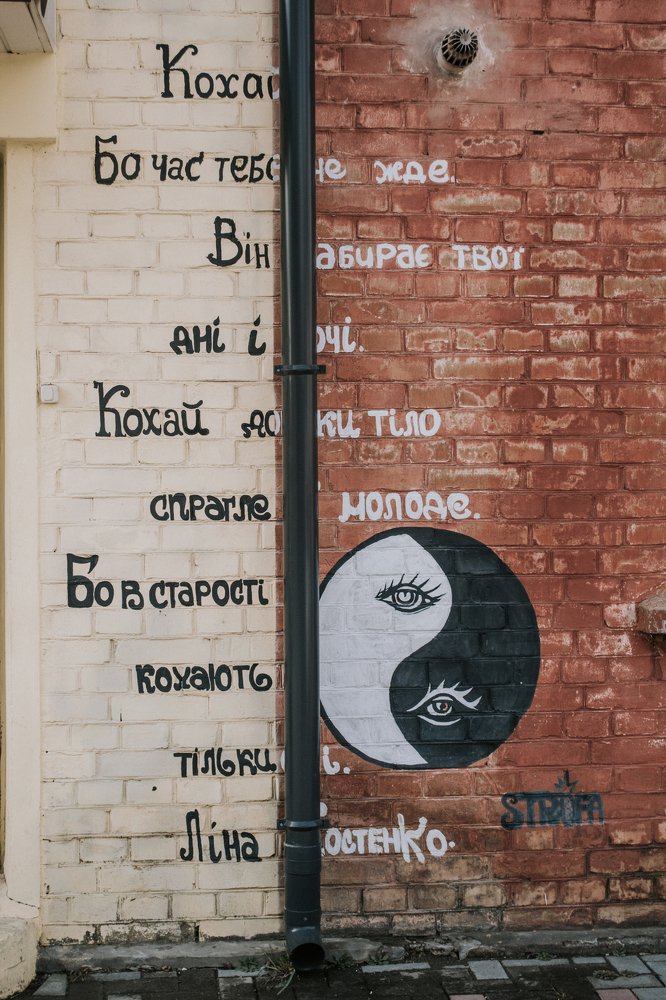 Кохай
Бо час тебе не жде.
Він забирає твої
дні і ночі.
Кохай допоки тіло
спрагле молоде.
Бо в старості
кохають
тільки
Ліна Костенко.
STROFA